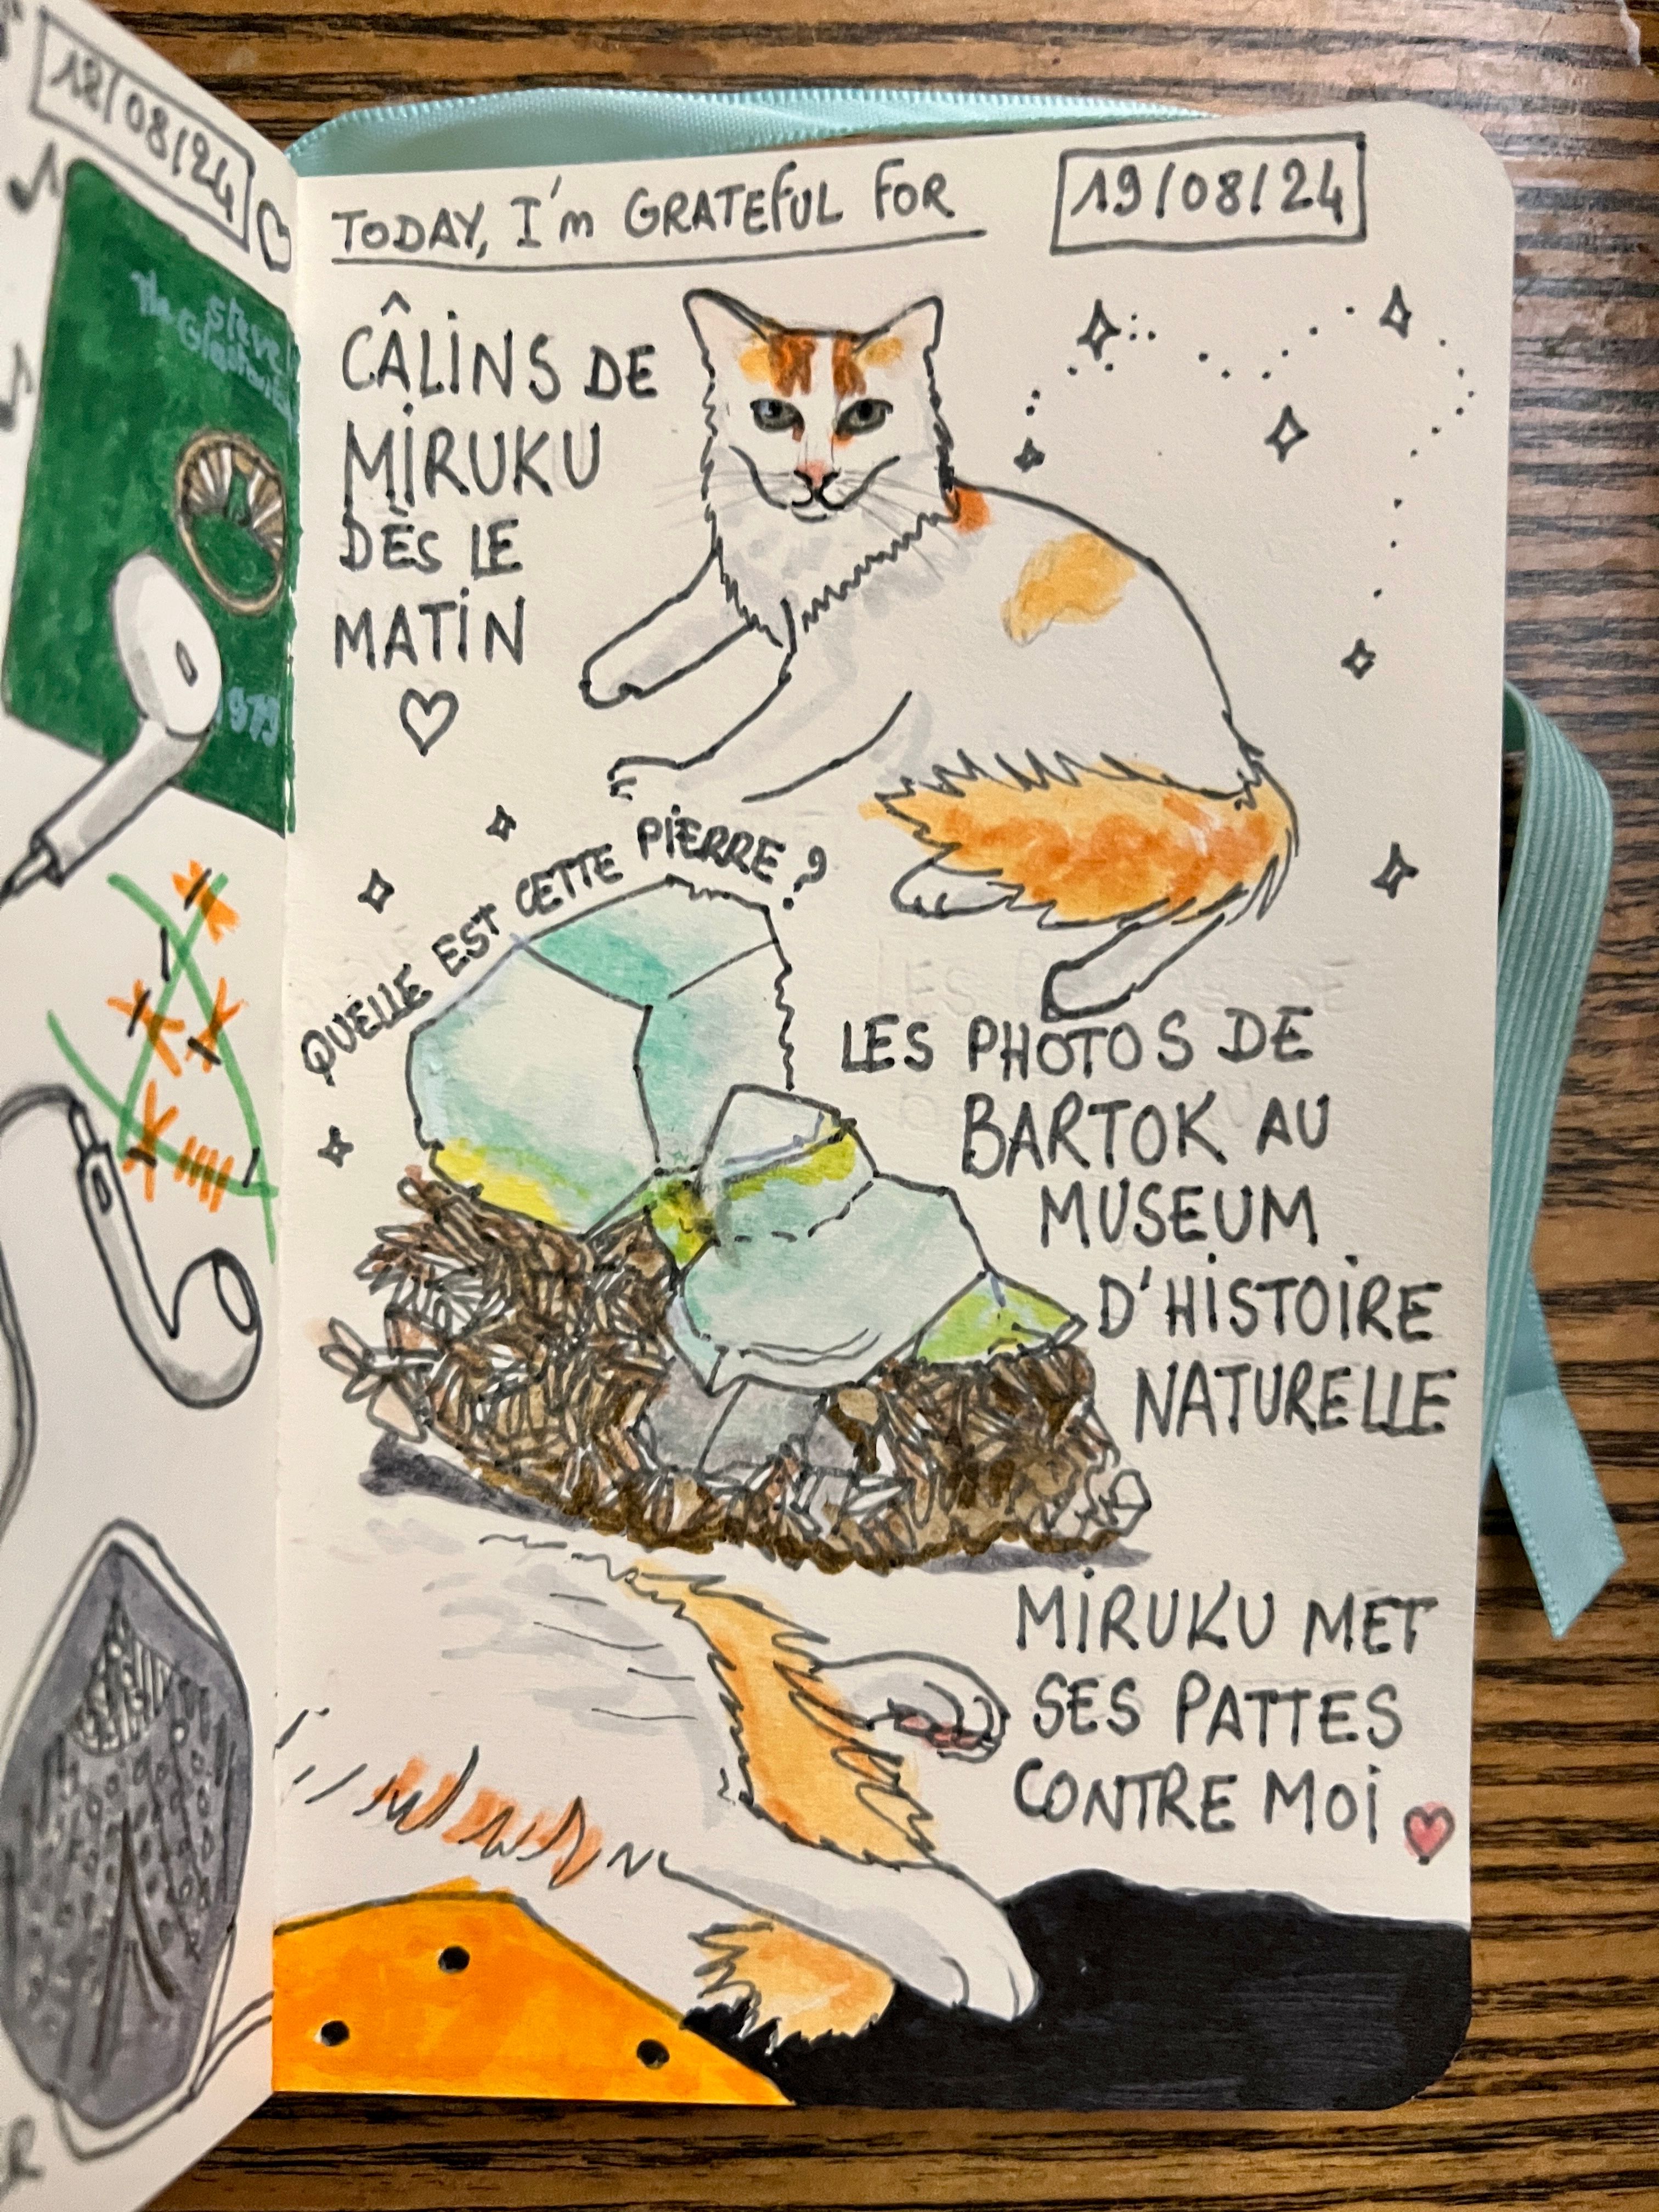 18/08/24
Steve
The
1979
TODAY, I'm GRATEFUL FOR
19/08/24
CÂLINS DE
MIRUKU
DÈS LE
MATIN
QUELLE EST CETTE PIERRE ?
LES PHOTOS DE
BARTOK AU
MUSEUM
D'HISTOIRE
NATURELLE
MIRUKU MET
SES PATTES
CONTRE MOI